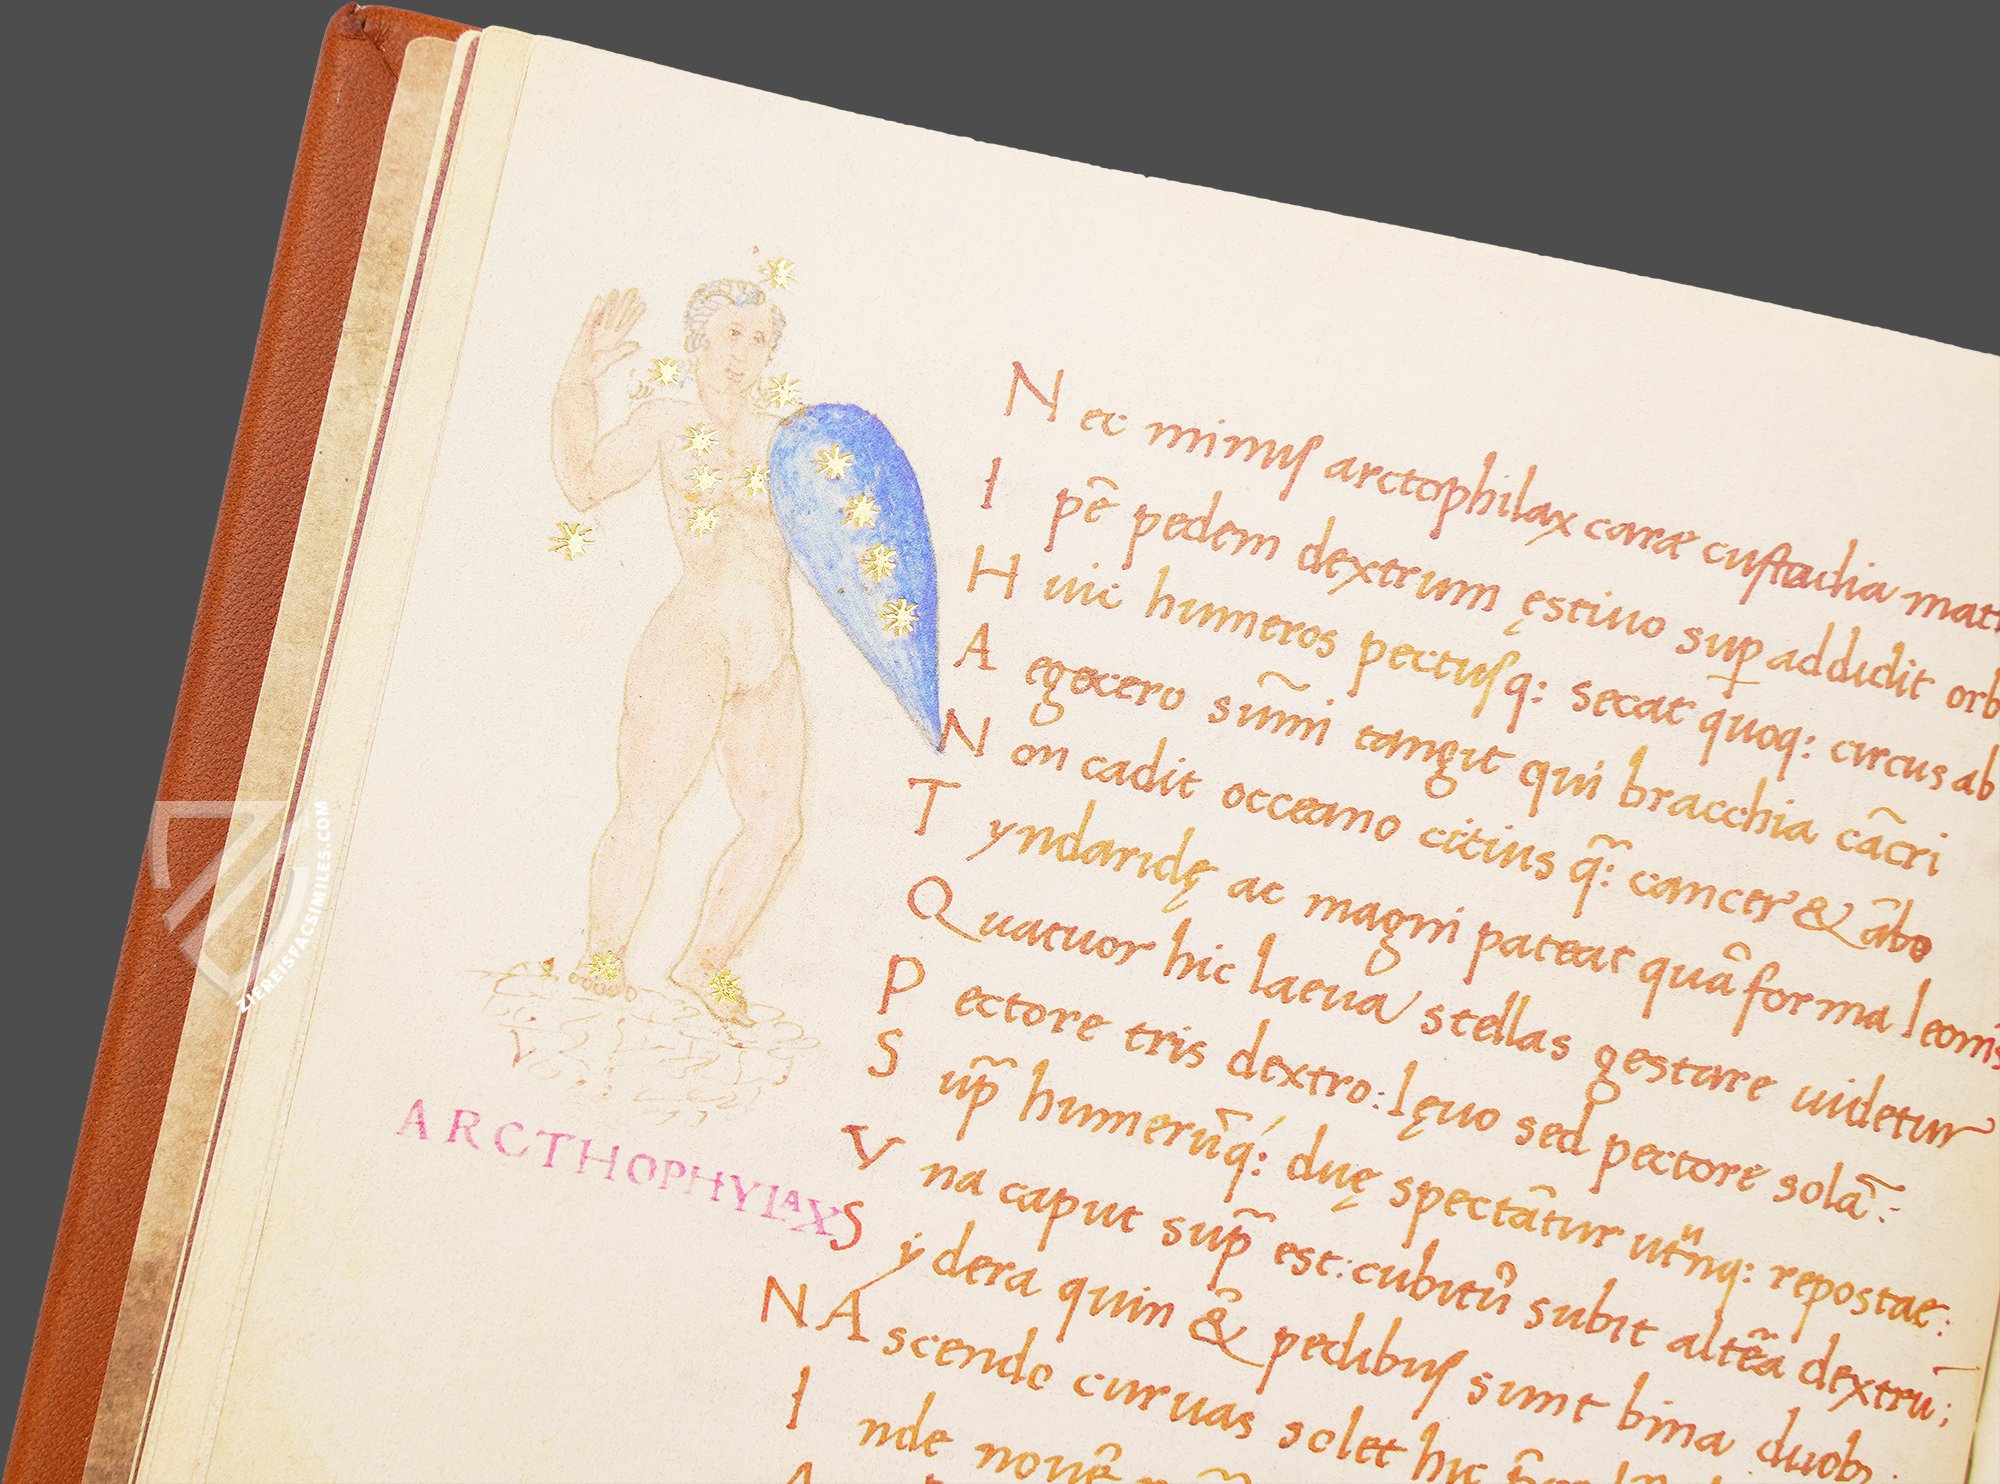 Nec minus arctophilax caræ custodia mat
Ipē pedem dextrum ęstiuo sup addudit orb
Huic humeros pectusq: secat quoq: circus ab
Aegocero sūmi tangit qui bracchia cācri
Non cadit occeano citius q̄: cancer & ābo
Tyndaridę ac magni pateat quā forma leonis
Quatuor hic laeua stellas gestare uidetur
Pectore tris dextro: lęuo sed pectore solā:
Sup̄ humerūq: duę spectātur utrnq: repostae:
Vna caput sup̄ est: cubitū subit altēa dextrū;
Sydera quin & pedibus sunt bina duob
NAscendo curuas solet hic
Inde nouē
ARCTHOPHYLAX
ZIEREISFACSIMILES.COM